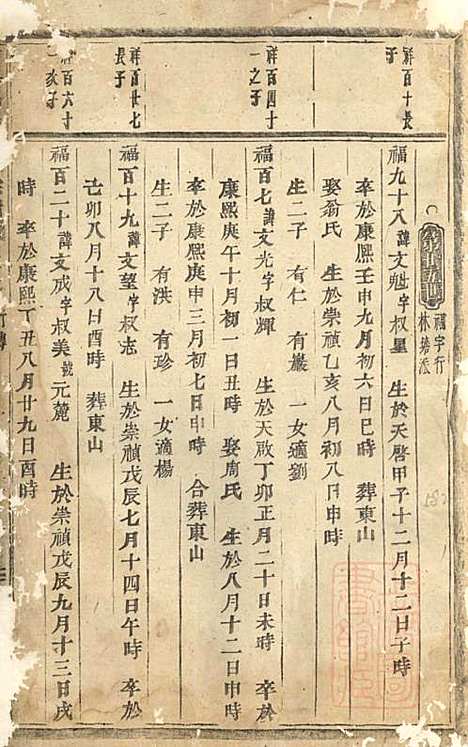 福字行
林塘派
祥百十長
子
福九十八諱文魁字叔星　生於天啓甲子十二月十二日子時
卒於康熙壬申九月初六日巳時　葬東山
娶翁氏　生於崇禎乙亥八月初八日申時
生二子　有仁　有嚴　一女適劉
祥百四十
一之子
福百七諱文光字叔輝　生於天啟丁卯正月二十日未時　卒於
康熙庚午十月初一日丑時　娶周氏　生於八月十二日申時
卒於康熙庚申三月初七日申時　合葬東山
生二子　有洪　有珍　一女適楊
祥百廿七
長子
福百十九諱文望字叔志　生於崇禎戊辰七月十四日午時　卒於
己卯八月十八日酉時　葬東山
祥百六十
一次子
福百二十諱文成字叔美號元麓　生於崇禎戊辰九月十三日戌
時　卒於康熙丁丑八月廿九日酉時